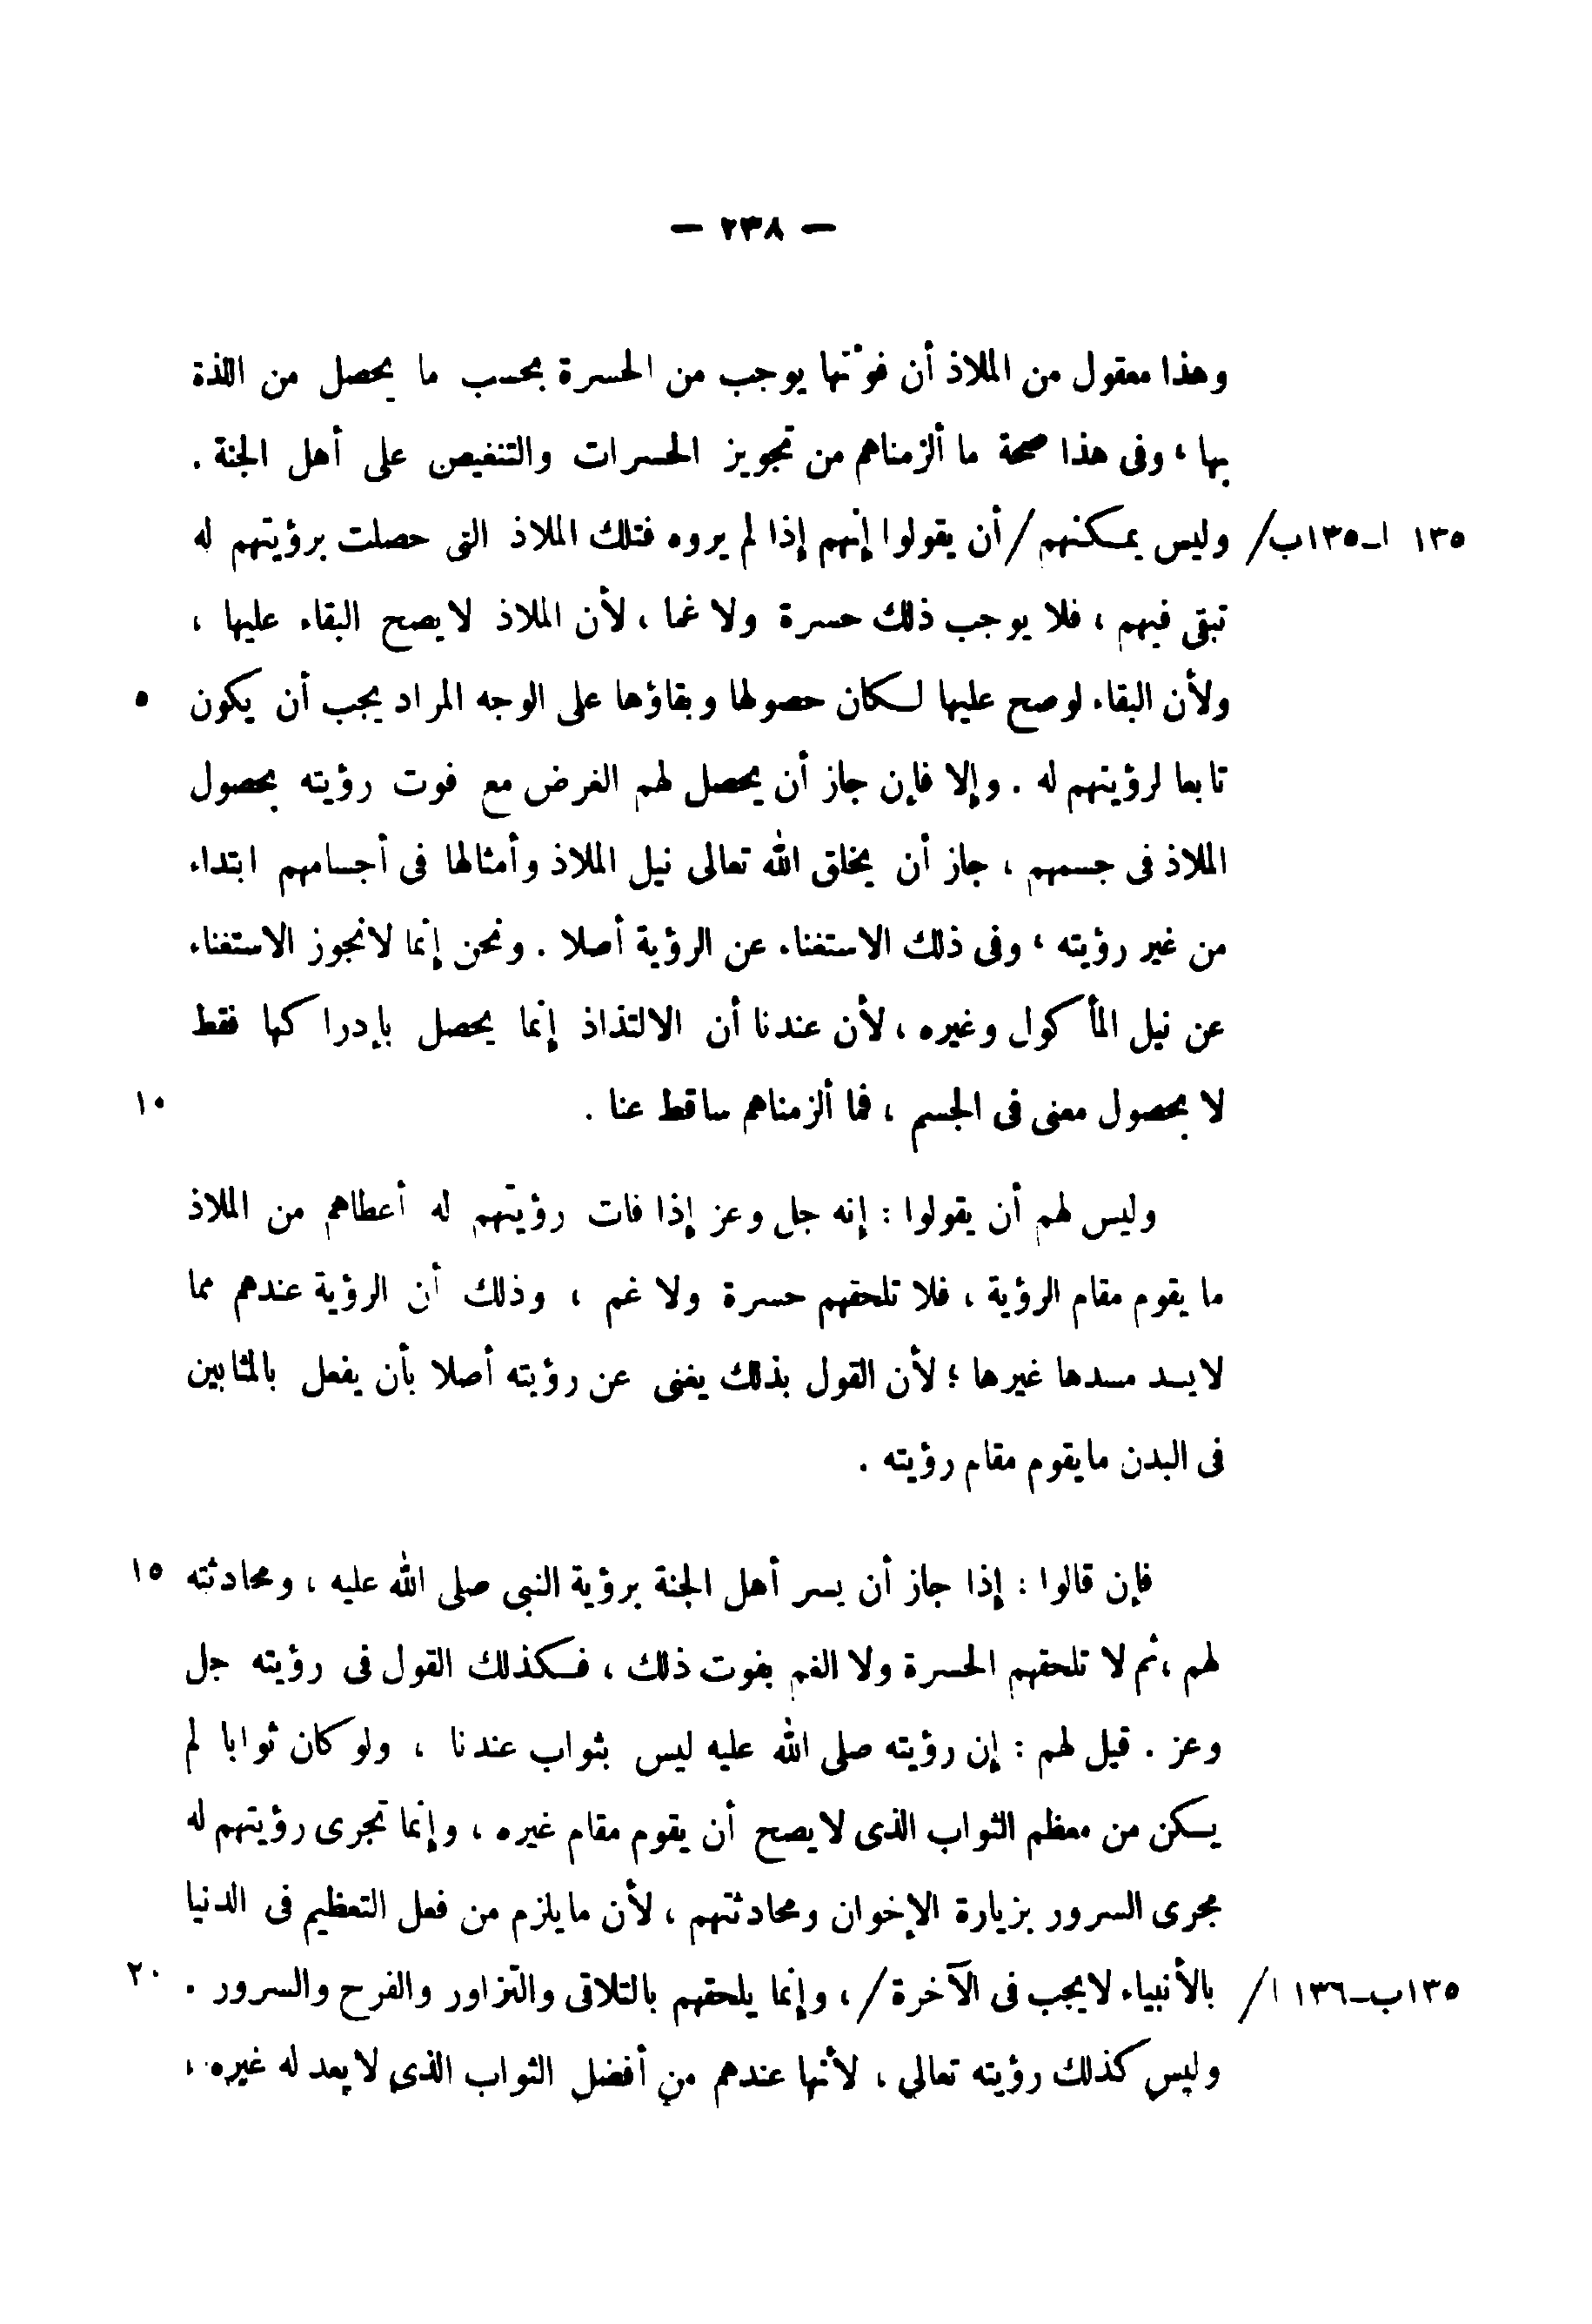 — ٢٣٨ —
وهذا معقول من الملاذ أن فوْتَها يوجب من الحسرة بحسب ما يحصل من اللذة
بها ، وفى هذا صحة ما ألزمناهم من تجويز الحسرات والتنغيص على أهل الجنة .
١٣٥ ا-١٣٥ب/ وليس يمكنهم /أن يقولوا إنهم إذا لم يروه فتلك الملاذ التى حصلت برؤيتهم له
تبقى فيهم ، فلا يوجب ذلك حسرة ولا غما ، لأن الملاذ لايصح البقاء عليها ،
ولأن البقاء لوصح عليها لكان حصولها وبقاؤها على الوجه المراد يجب أن يكون ٥
تابعا لرؤيتهم له . وإلا فإن جاز أن يحصل لهم الغرض مع فوت رؤيته بحصول
الملاذ فى جسمهم ، جاز أن يخلق الله تعالى نيل الملاذ وأمثالها فى أجسامهم ابتداء
من غير رؤيته ، وفى ذلك الاستغناء عن الرؤية أصلا . ونحن إنما لانجوز الاستغناء
عن نيل المأكول وغيره ، لأن عندنا أن الالتذاذ إنما يحصل بإدراكها فقط
لا بحصول معنى فى الجسم ، فما ألزمناهم ساقط عنا . ١٠
وليس لهم أن يقولوا : إنه جل وعز إذا فات رؤيتهم له أعطاهم من الملاذ
ما يقوم مقام الرؤية ، فلا تلحقهم حسرة ولا غم ، وذلك أن الرؤية عندهم مما
لايسد مسدها غيرها ؛ لأن القول بذلك يغنى عن رؤيته أصلا بأن يفعل بالمثابين
فى البدن مايقوم مقام رؤيته .
فإن قالوا : إذا جاز أن يسر أهل الجنة برؤية النبى صلى الله عليه ، ومحادثته ١٥
لهم ، ثم لا تلحقهم الحسرة ولا الغم بفوت ذلك ، فكذلك القول فى رؤيته جل
وعز . قيل لهم : إن رؤيته صلى الله عليه ليس بثواب عندنا ، ولو كان ثوابا لم
يكن من معظم الثواب الذى لايصح أن يقوم مقام غيره ، وإنما تجرى رؤيتهم له
مجرى السرور بزيارة الإخوان ومحادثتهم ، لأن مايلزم من فعل التعظيم فى الدنيا
١٣٥ب-١٣٦ ا/ بالأنبياء لايجب فى الآخرة /، وإنما يلحقهم بالتلاقى والتزاور والفرح والسرور . ٢٠
وليس كذلك رؤيته تعالى ، لأنها عندهم من أفضل الثواب الذى لايعد له غيره ،